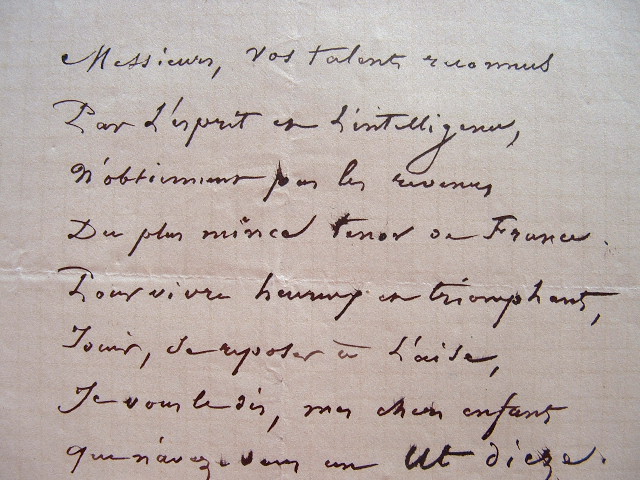 Messieurs, vos talents reconnus
Par l'esprit et l'intelligence,
N'obtiennent pas les revenus
Du plus mince tenor de France.
Pour vivre heureux et triomphant,
Jouir, se reposer à l'aise,
Je vous le dis, mes chers enfants
que n'avez-vous un Ut dieze.